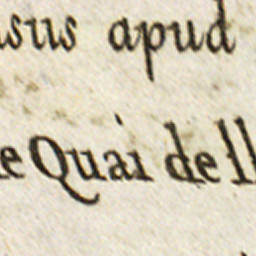 sus apud
e Quai dell